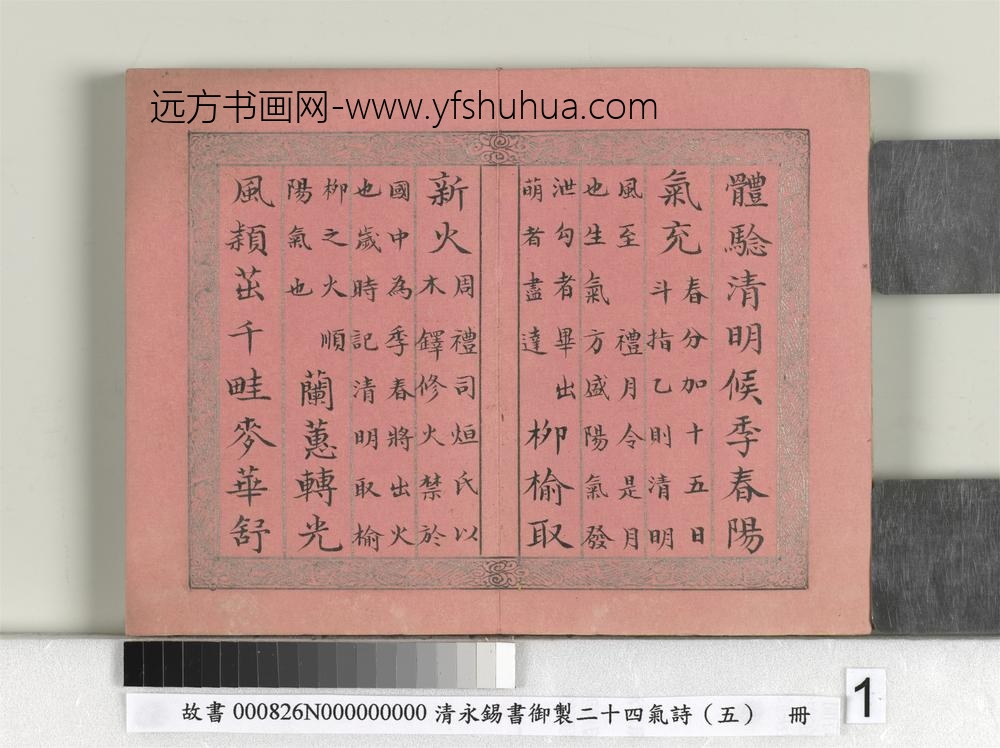 远方书画网-www.yfshuhua.com
體騐清明候季春陽
氣充
春分加十五日
斗指乙則清明
風至 禮月令是月
也生氣方盛陽氣發
泄勾者畢出
萌者盡達
栁榆取
新火
周禮司烜氏以
木鐸修火禁於
國中為季春將出火
也歲時記清明取榆
柳之火順
陽氣也
蘭蕙轉光
風茁千畦麥華舒
故書 000826N000000000 清永錫書御製二十四氣詩（五） 冊
1